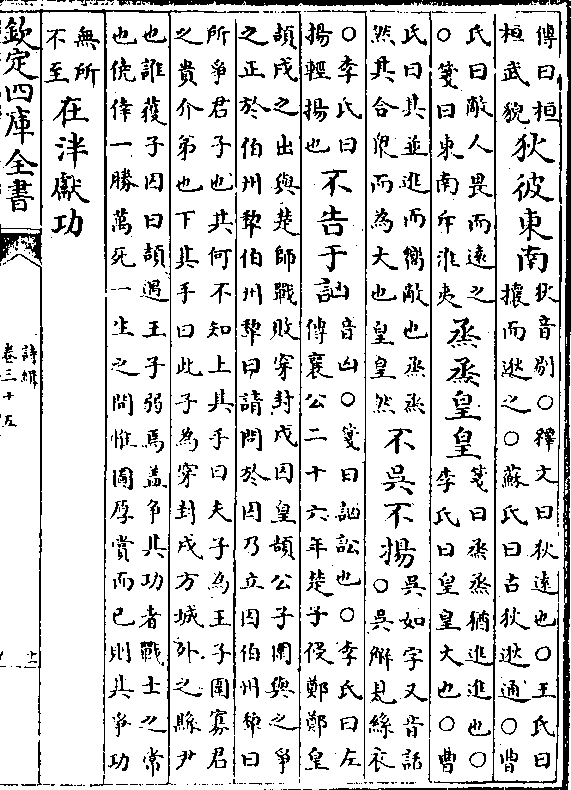 傳曰桓
桓武貌
狄彼東南
狄音剔○釋文曰狄遠也○王氏曰
攘而逖之○蘇氏曰古狄逖通○曹
氏曰敵人畏而遠之
○箋曰東南斥淮夷
烝烝皇皇
箋曰烝烝猶進進也○
李氏曰皇皇大也○曹
氏曰其並進而禦敵也烝烝
然其合衆而為大也皇皇然
不吳不揚
吳如字又音話
○吳解見絲衣
○李氏曰
揚輕揚也
不告于訩
音凶○箋曰訩訟也○李氏曰左
傳襄公二十六年楚子侵鄭鄭皇
頡戍之出與楚師戰敗穿封戌囚皇頡公子圍與之爭
之正於伯州犂伯州犂曰請問於囚乃立囚伯州犂曰
所爭君子也其何不知上其手曰夫子為王子圍寡君
之貴介弟也下其手曰此子為穿封戌方城外之縣尹
也誰獲子囚曰頡遇王子弱焉蓋爭其功者戰士之常
也僥倖一勝萬死一生之間惟圖厚賞而已則其爭功
無所
不至
在泮獻功
欽定四庫全書
詩緝
卷三十五